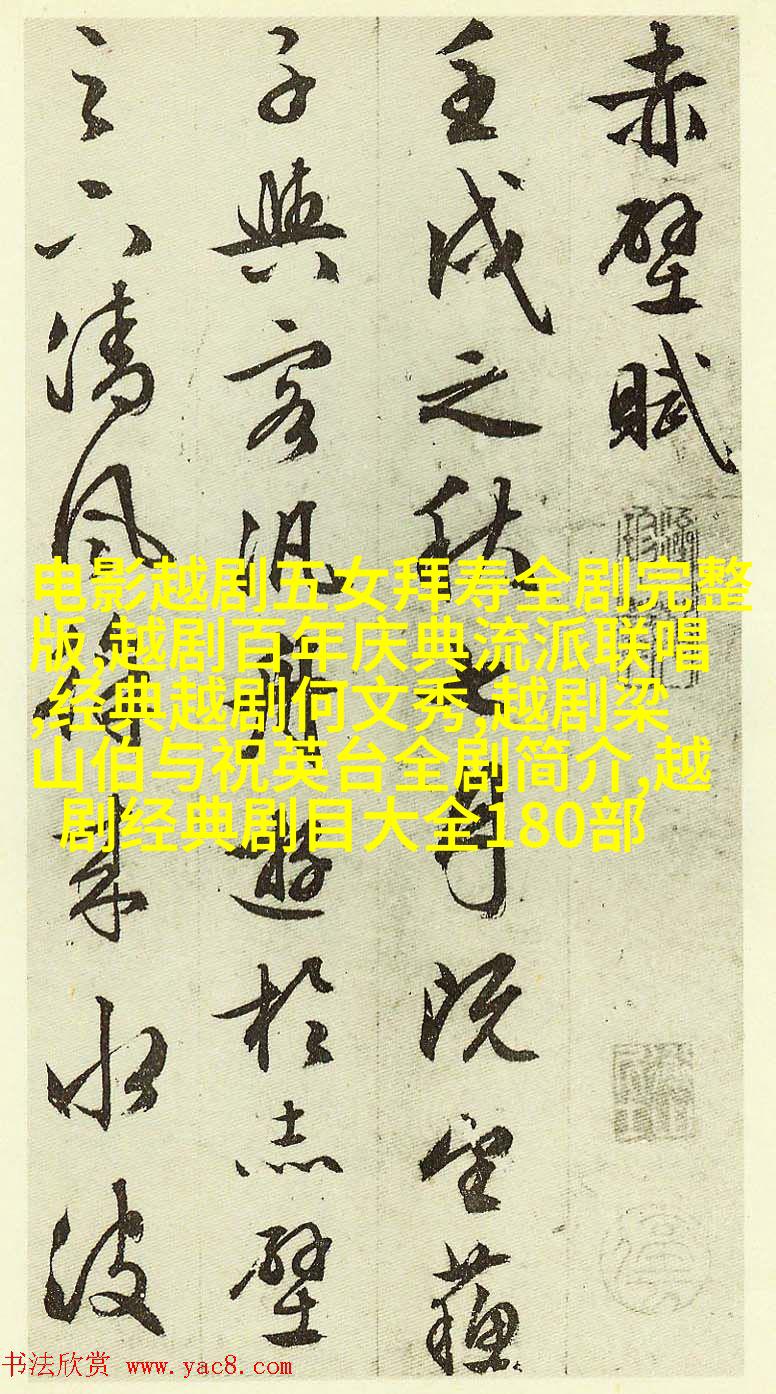 赤壁賦
壬戌之秋七月既望蘇
子與客汎舟遊於赤壁
之下清風徐來水波
电影越剧五女拜寿全剧完整
版,越剧百年庆典流派联唱
,经典越剧何文秀,越剧梁
山伯与祝英台全剧简介,越
剧经典剧目大全180部
书法欣赏 www.yac8.com